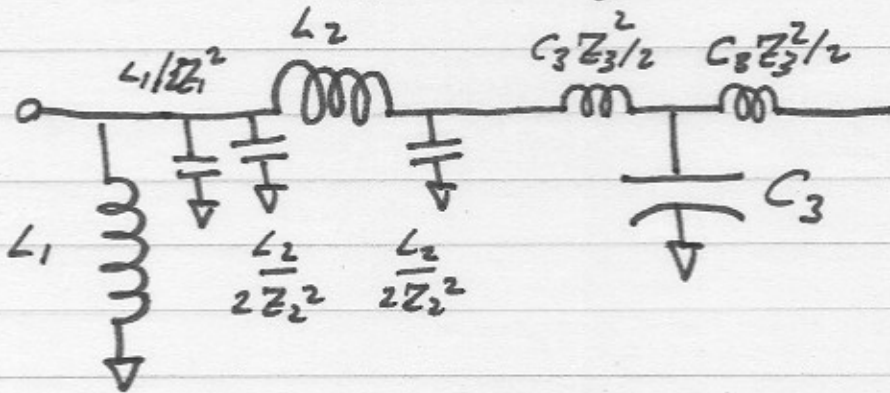 L₂
L₁/2Z₁²
C₃Z₃²/2
C₃Z₃²/2
L₁
L₂/2Z₂²
L₂/2Z₂²
C₃